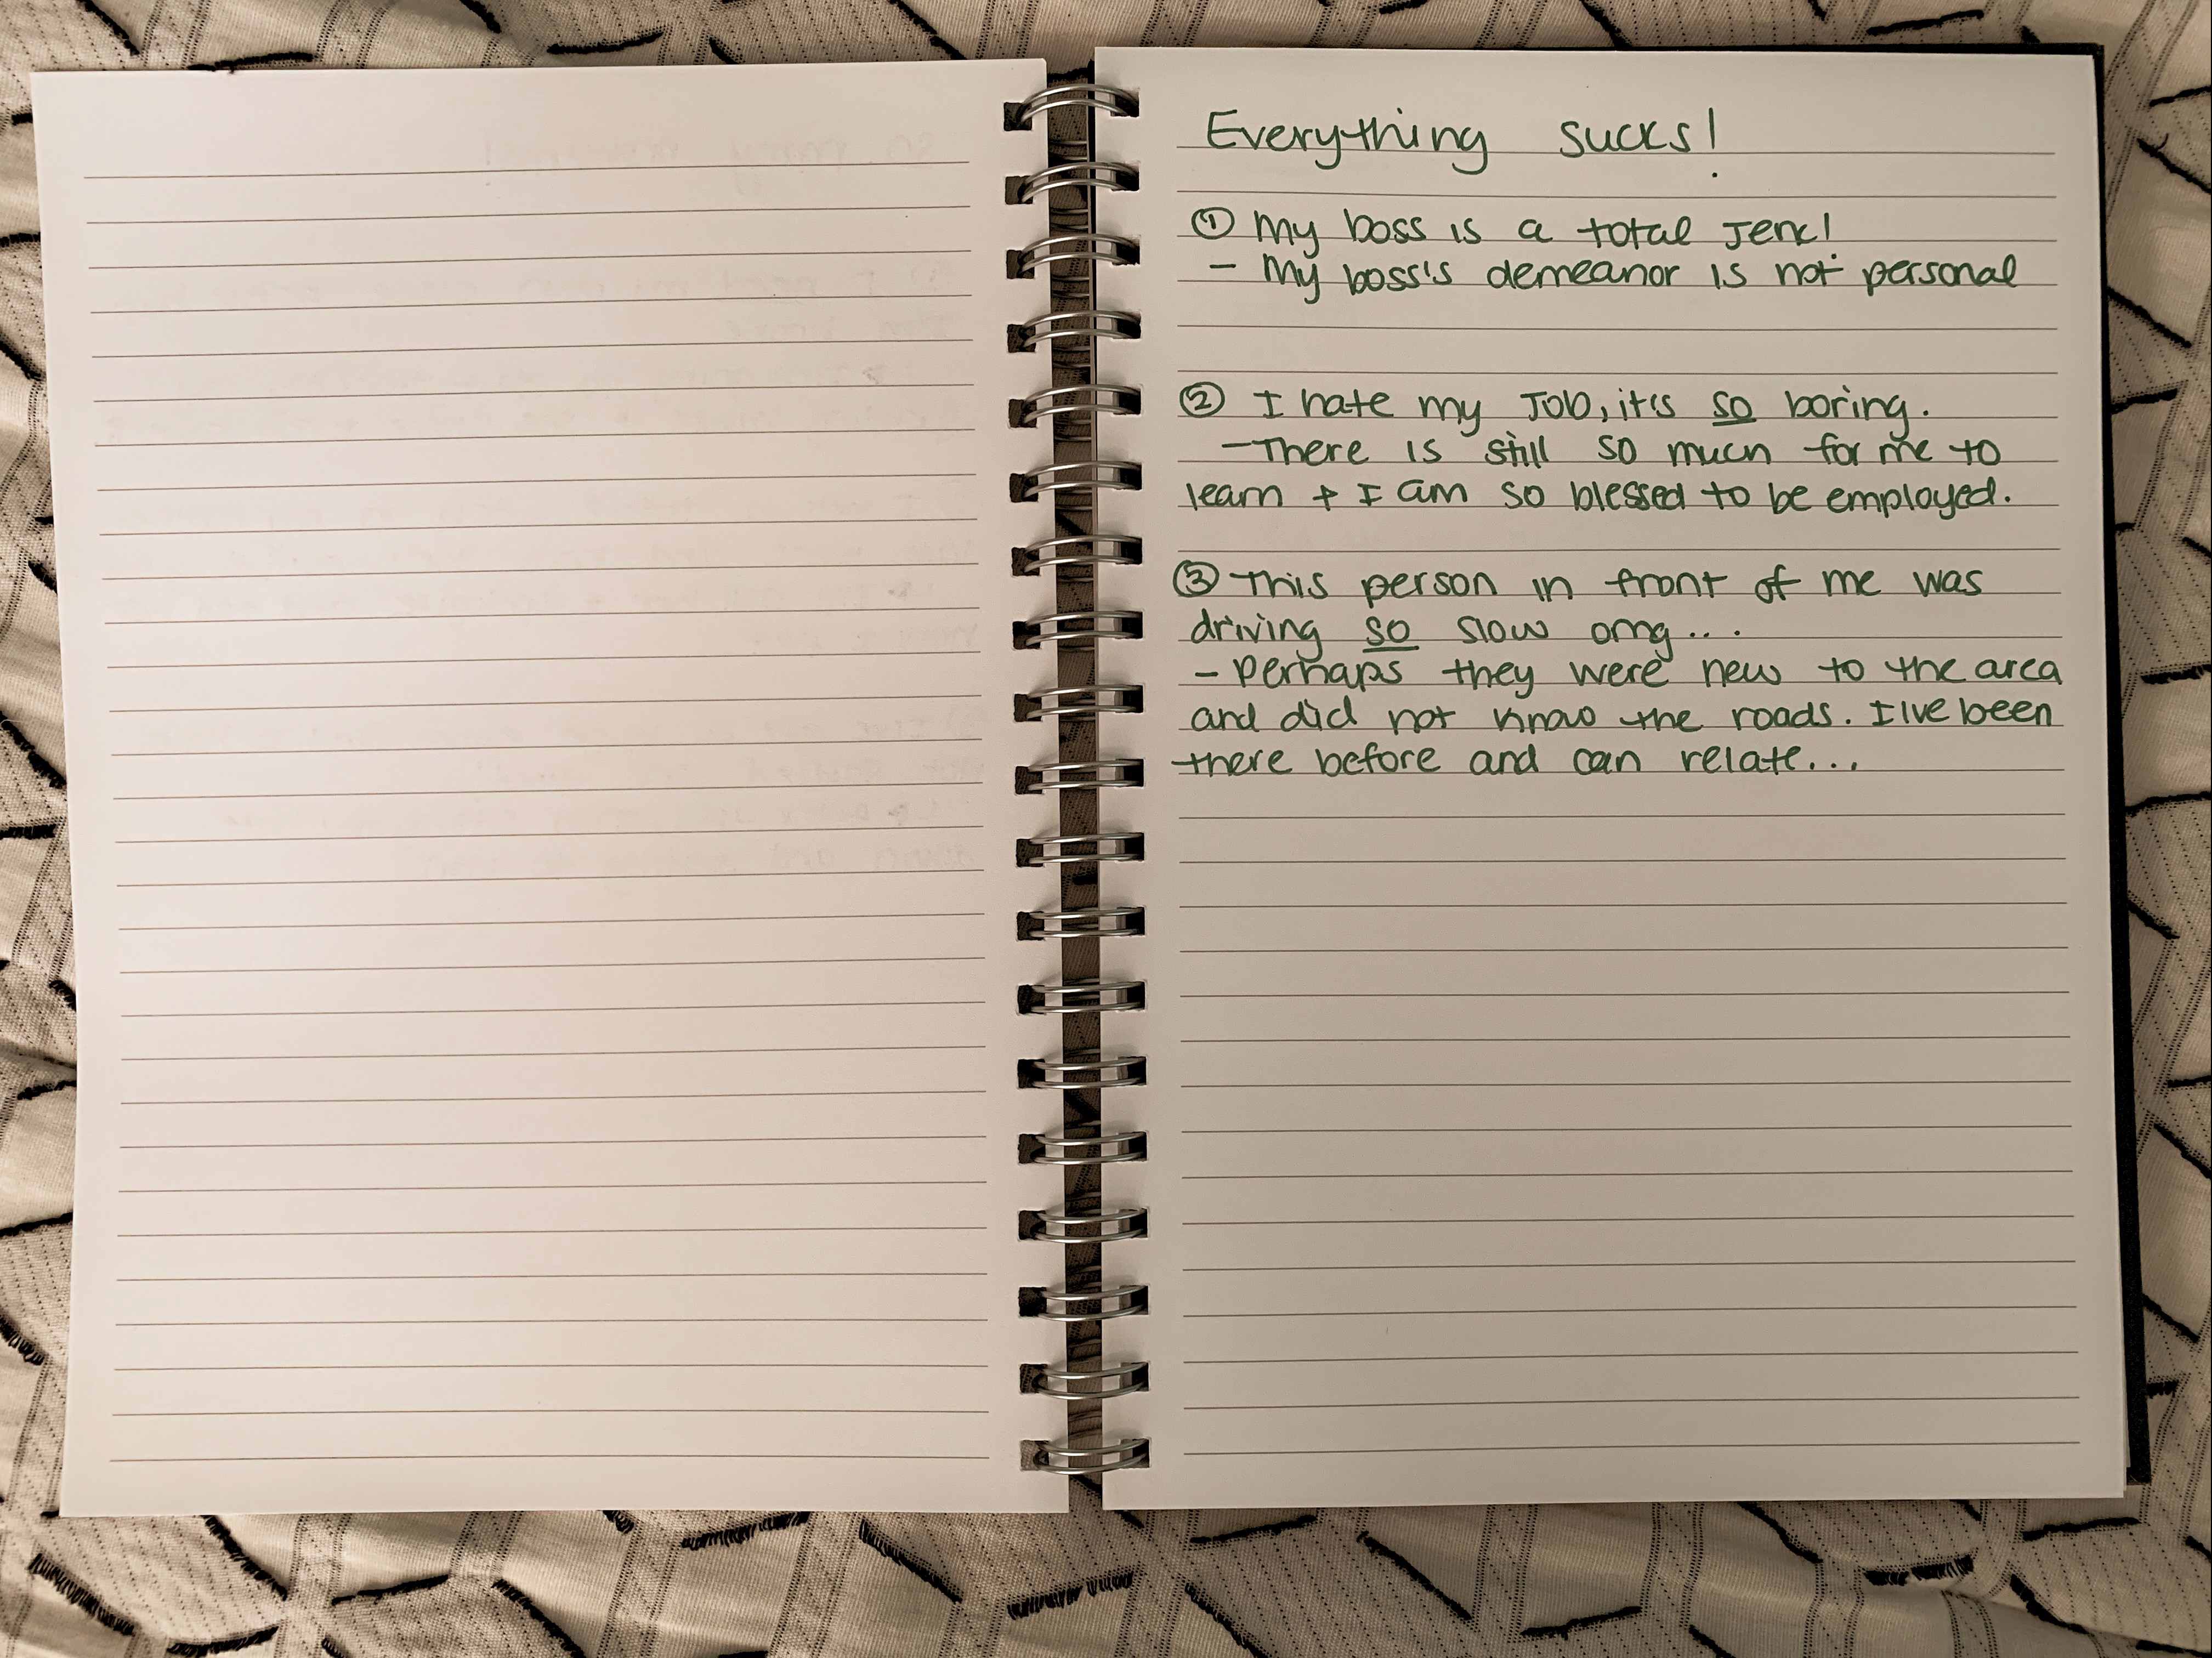 Everything sucks!
① My boss is a total Jerk!
- My boss's demeanor is not personal
② I hate my Job, it's so boring.
- There is still so much for me to
learn + I am so blessed to be employed.
③ This person in front of me was
driving so slow omg...
- Perhaps they were new to the area
and did not know the roads. I've been
there before and can relate...